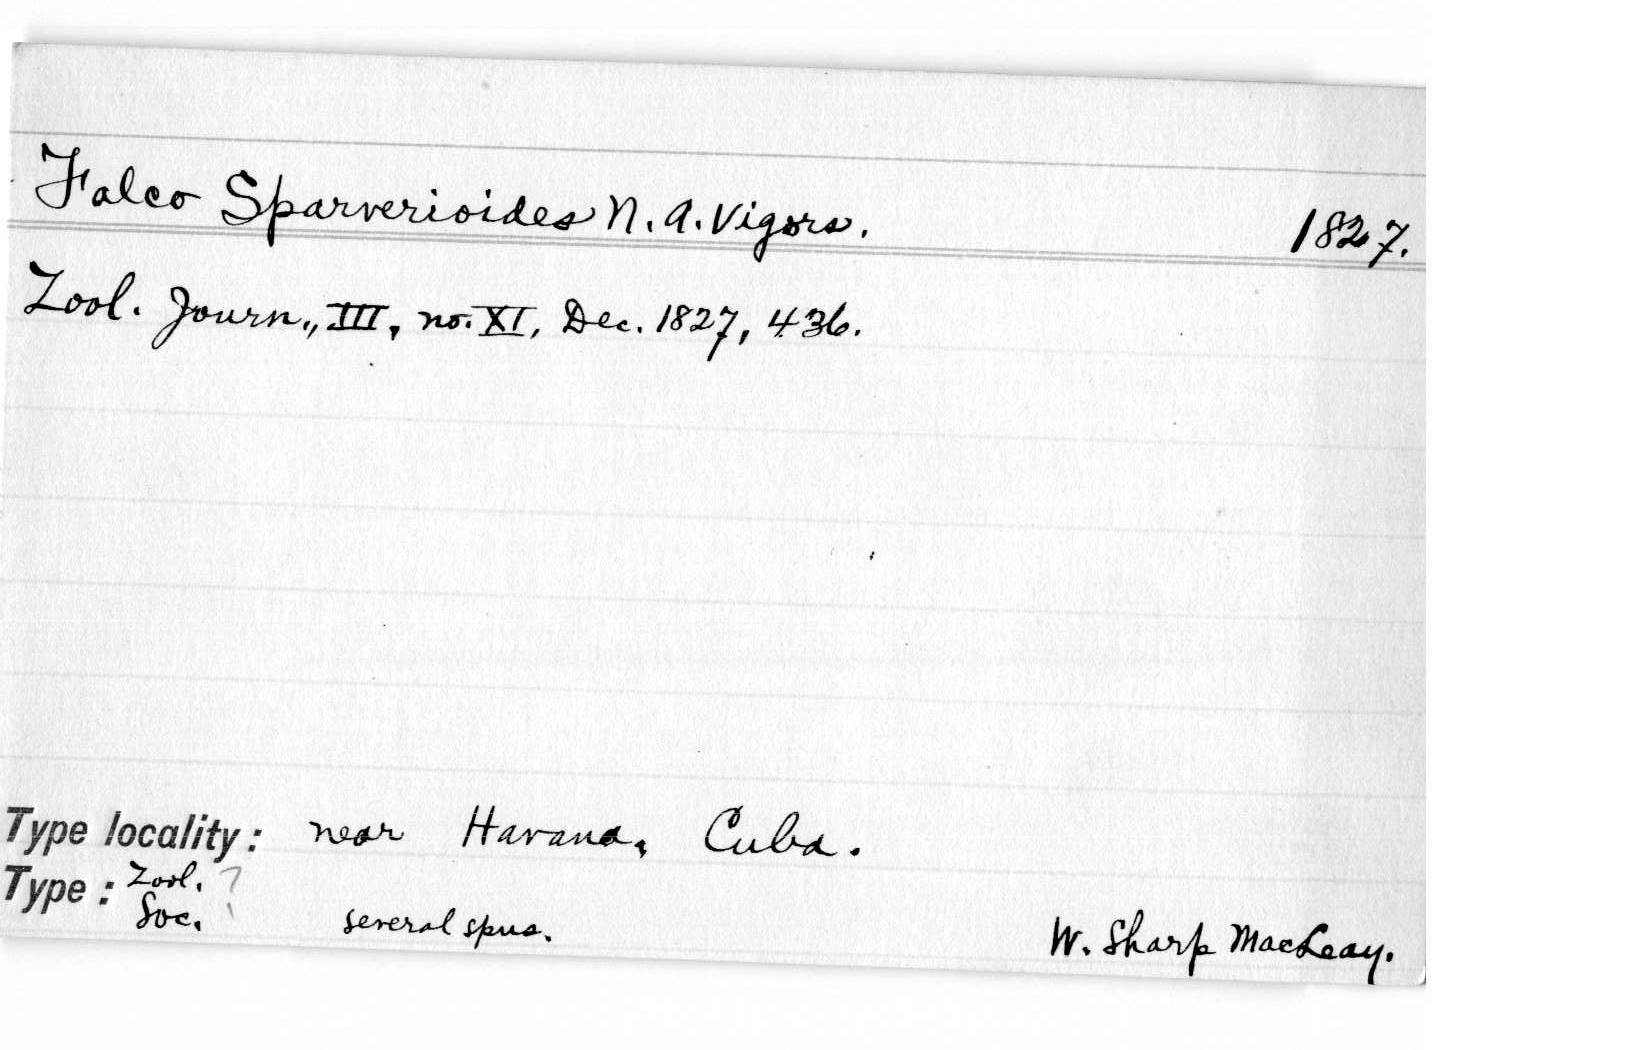 Falco Sparverioides N. A. Vigors. 1827.
Zool. Journ., III, no. XI, Dec. 1827, 436.
Type locality: near Havana, Cuba.
Type: Zool. ?
Soc. several spns. W. Sharp MacLeay.